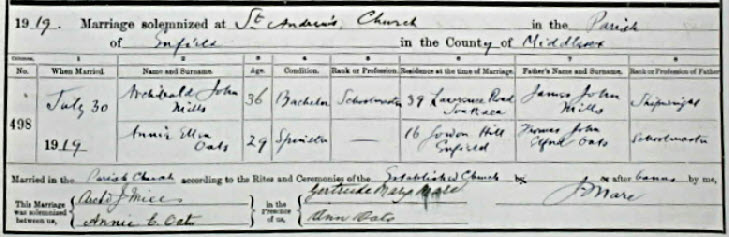 1919. Marriage solemnized at St Andrew's Church in the Parish
of Enfield in the County of Middlesex
Columns. 1 2 3 4 5 6 7 8
No. When Married Name and Surname. Age. Condition. Rank or Profession. Residence at the time of Marriage. Father's Name and Surname. Rank or Profession of Father
498 July 30 1919
Archibald John Mills 36 Bachelor Schoolmaster 39 Lawrence Road James John Mills Shipwright
Annie Ellen Oats 29 Spinster — 16 Gordon Hill Enfield Thomas John Oats Schoolmaster
Married in the Parish Church according to the Rites and Ceremonies of the Established Church by or after banns by me,
This Marriage was solemnized between us, Archd J Mills Annie E. Oats in the Presence of us, Gertrude Mary Ann Oats J. Mare